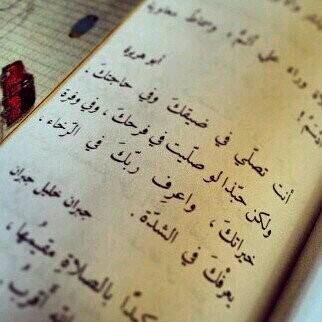 وراء على
أبو هريرة
أنت تصلّي في ضيقكَ وفي حاجتكَ.
ولكن حبّذا لو صلّيت في فرحكَ، وفي وفرة
خيراتكَ، واعرف ربّكَ في الرّخاء،
يعرفْكَ في الشدّة.
جبران خليل جبران
بالصّلاةِ مقيمُها،
أقربُ